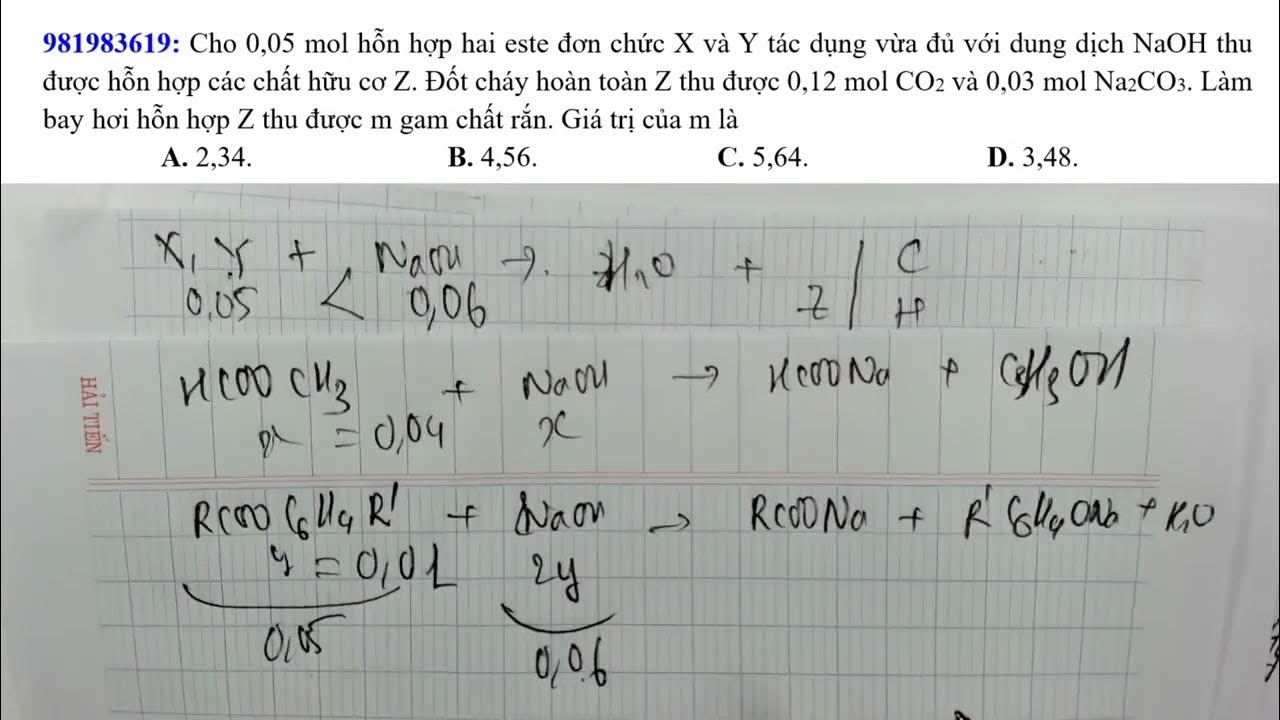 981983619: Cho 0,05 mol hỗn hợp hai este đơn chức X và Y tác dụng vừa đủ với dung dịch NaOH thu
được hỗn hợp các chất hữu cơ Z. Đốt cháy hoàn toàn Z thu được 0,12 mol CO₂ và 0,03 mol Na₂CO₃. Làm
bay hơi hỗn hợp Z thu được m gam chất rắn. Giá trị của m là
A. 2,34. B. 4,56. C. 5,64. D. 3,48.
X, Y + NaOH → H₂O + Z | C
0,05 < 0,06 H
HẢI TIẾN
HCOO CH₃ + NaOH → HCOONa +
x = 0,04 x
RCOO C₆H₄ R' + NaOH → RCOONa + R' C₆H₄ONa + H₂O
y = 0,01 2y
0,05 0,06